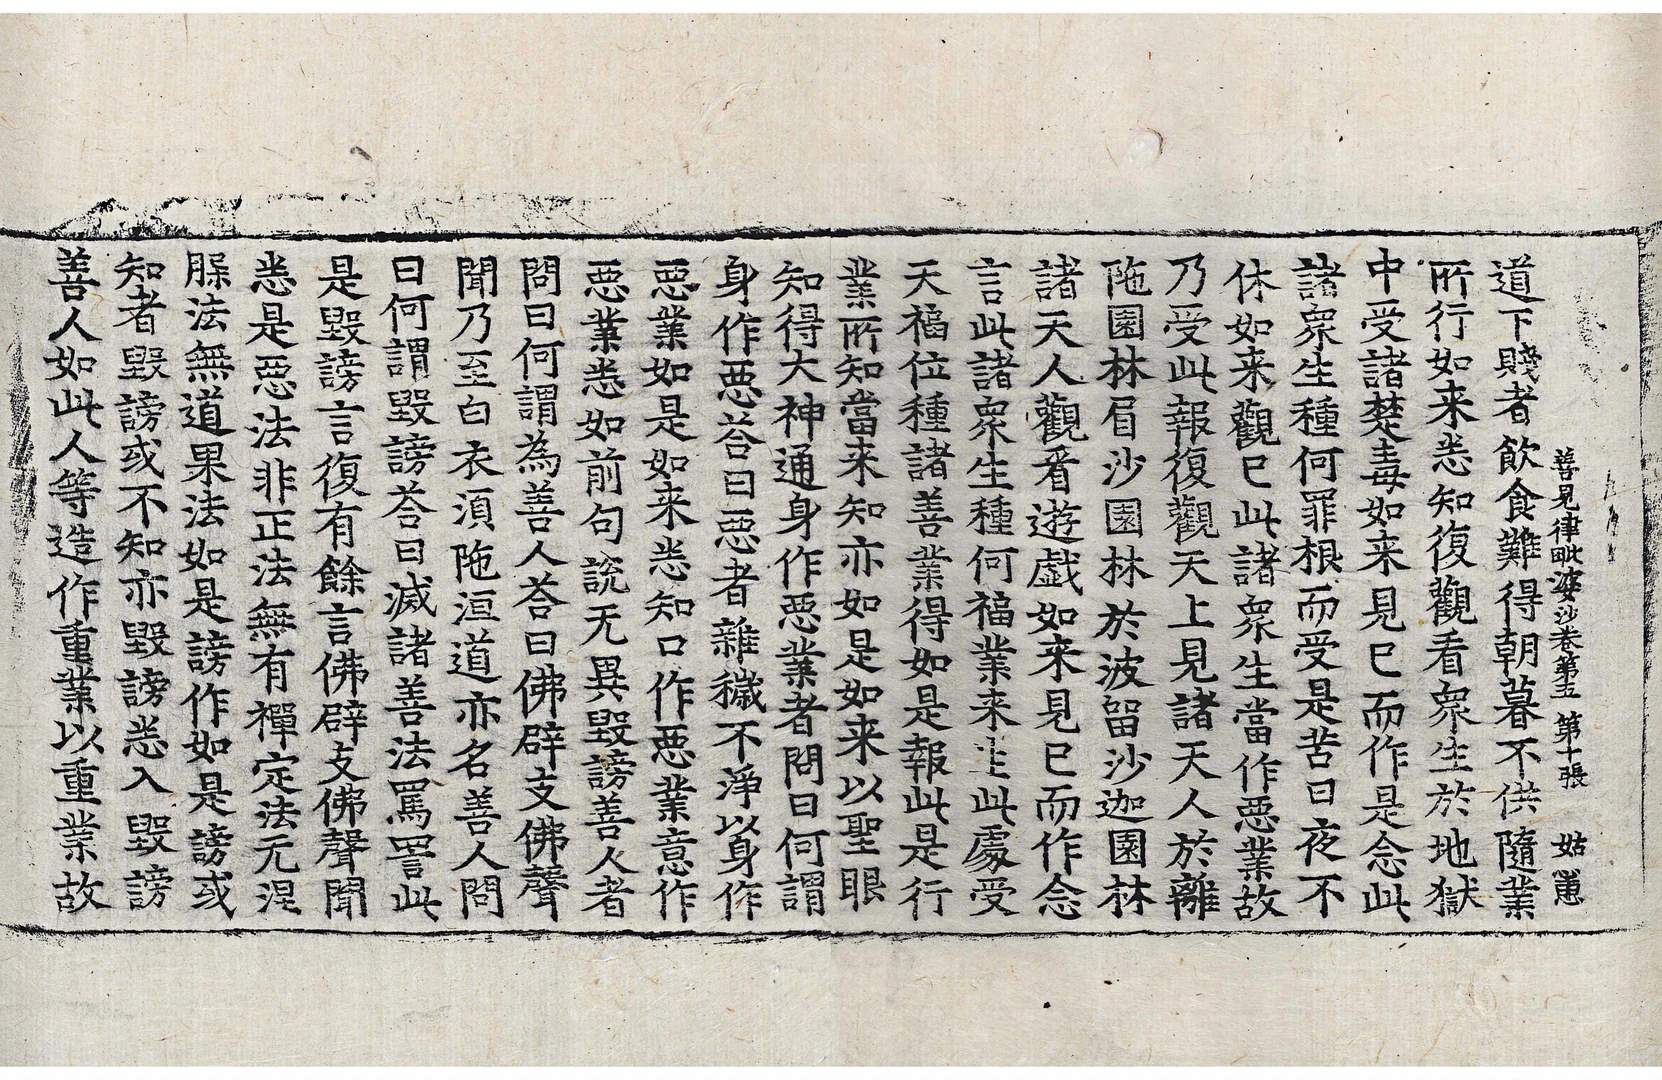 善見律毗婆沙卷第五 第十張 姑
道下賤者飲食難得朝暮不供隨業
所行如来悉知復觀看衆生於地獄
中受諸楚毒如来見已而作是念此
諸衆生種何罪根而受是苦日夜不
休如来觀已此諸衆生當作惡業故
乃受此報復觀天上見諸天人於離
陁園林眉沙園林於波留沙迦園林
諸天人觀看遊戯如来見已而作念
言此諸衆生種何福業来生此處受
天福位種諸善業得如是報此是行
業所知當来知亦如是如来以聖眼
知得大神通身作惡業者問曰何謂
身作惡荅曰惡者雜穢不淨以身作
惡業如是如来悉知口作惡業意作
惡業悉如前句說无異毀謗善人者
問曰何謂為善人荅曰佛辟支佛聲
聞乃至白衣湏陁洹道亦名善人問
曰何謂毀謗荅曰滅諸善法罵詈此
是毀謗言復有餘言佛辟支佛聲聞
悉是惡法非正法無有禪定法无涅
槃法無道果法如是謗作如是謗或
知者毀謗或不知亦毀謗悉入毀謗
善人如此人等造作重業以重業故